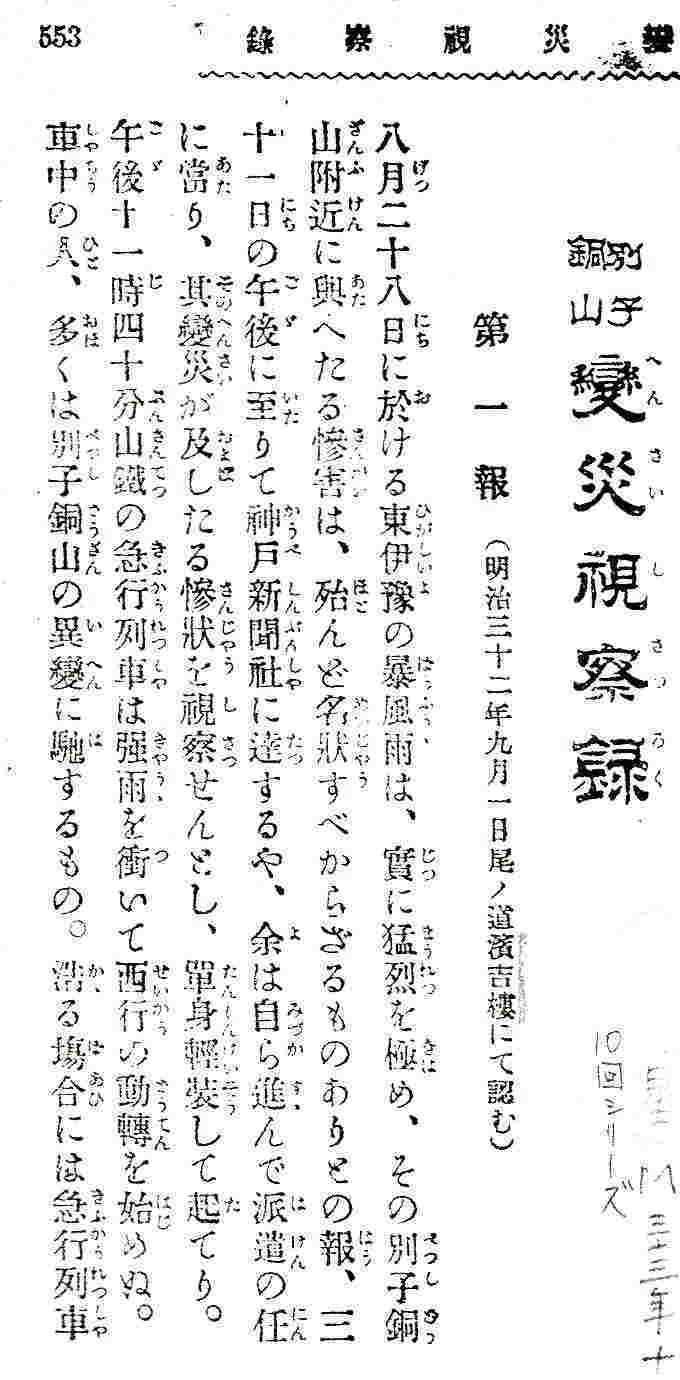 變災視察錄
553
別子
銅山
變災視察録
へんさいしさつろく
第一報
(明治三十二年九月一日尾ノ道濱吉樓にて認む)
八月二十八日に於ける東伊豫の暴風雨は、實に猛烈を極め、その別子銅
山附近に與へたる慘害は、殆んど名狀すべからざるものありとの報、三
十一日の午後に至りて神戸新聞社に達するや、余は自ら進んで派遣の任
に當り、其變災が及したる慘狀を視察せんとし、單身輕裝して起てり。
午後十一時四十分山鐵の急行列車は强雨を衝いて西行の動轉を始めぬ。
車中の人、多くは別子銅山の異變に馳するもの。浩る塲合には急行列車
10回シリーズ
三十三年十